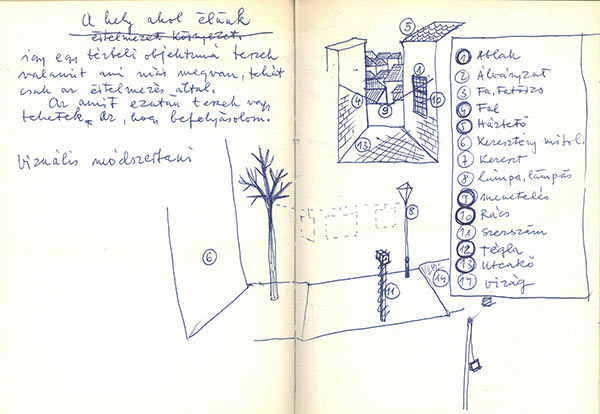 A hely ahol élünk
értelmezett környezet.
így egy térbeli objektumá teszek
valamit ami már megvan, tehát
csak az értelmezés által.
Az amit ezután teszek vagy
tehetek az, hogy befolyásolom.
vizuális módszertani
5
1
4
9
10
13
6
8
11
14
1 Ablak
2 Álványzat
3 Fa, Fatörzs
4 Fal
5 Háztető
6 Keresztény mitol.
7 Kereszt
8 Lámpa, lámpás
9 menetelés
10 Rács
11 Szerszám
12 Tégla
13 Utcakő
14 virág